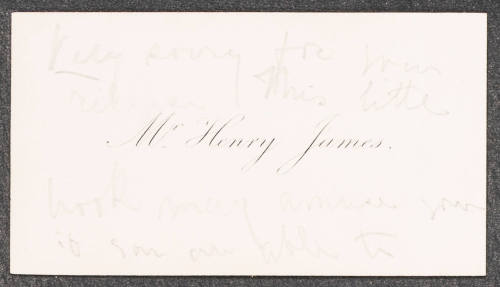 Very sorry for your
relapse! This little
Mr Henry James.
book may amuse you
if you are able to